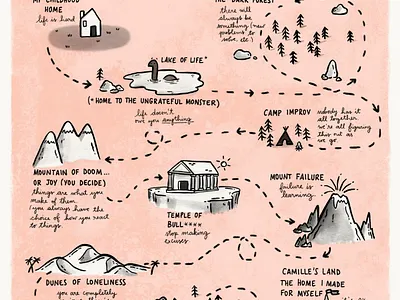 MY CHILDHOOD
HOME
life is hard
THE DARK FOREST
there will
always be
something (new
problems to
solve, etc.)
LAKE OF LIFE*
(*HOME TO THE UNGRATEFUL MONSTER)
life doesn't
owe you anything
CAMP IMPROV
nobody has it
all together
we're all figuring
this out as
we go
MOUNTAIN OF DOOM...
OR JOY (YOU DECIDE)
things are what you
make of them
you always have the
choice of how you react
to things.
TEMPLE OF
BULL****
stop making
excuses
MOUNT FAILURE
failure is
learning
DUNES OF LONELINESS
you are completely
CAMILLE'S LAND
THE HOME I MADE
FOR MYSELF